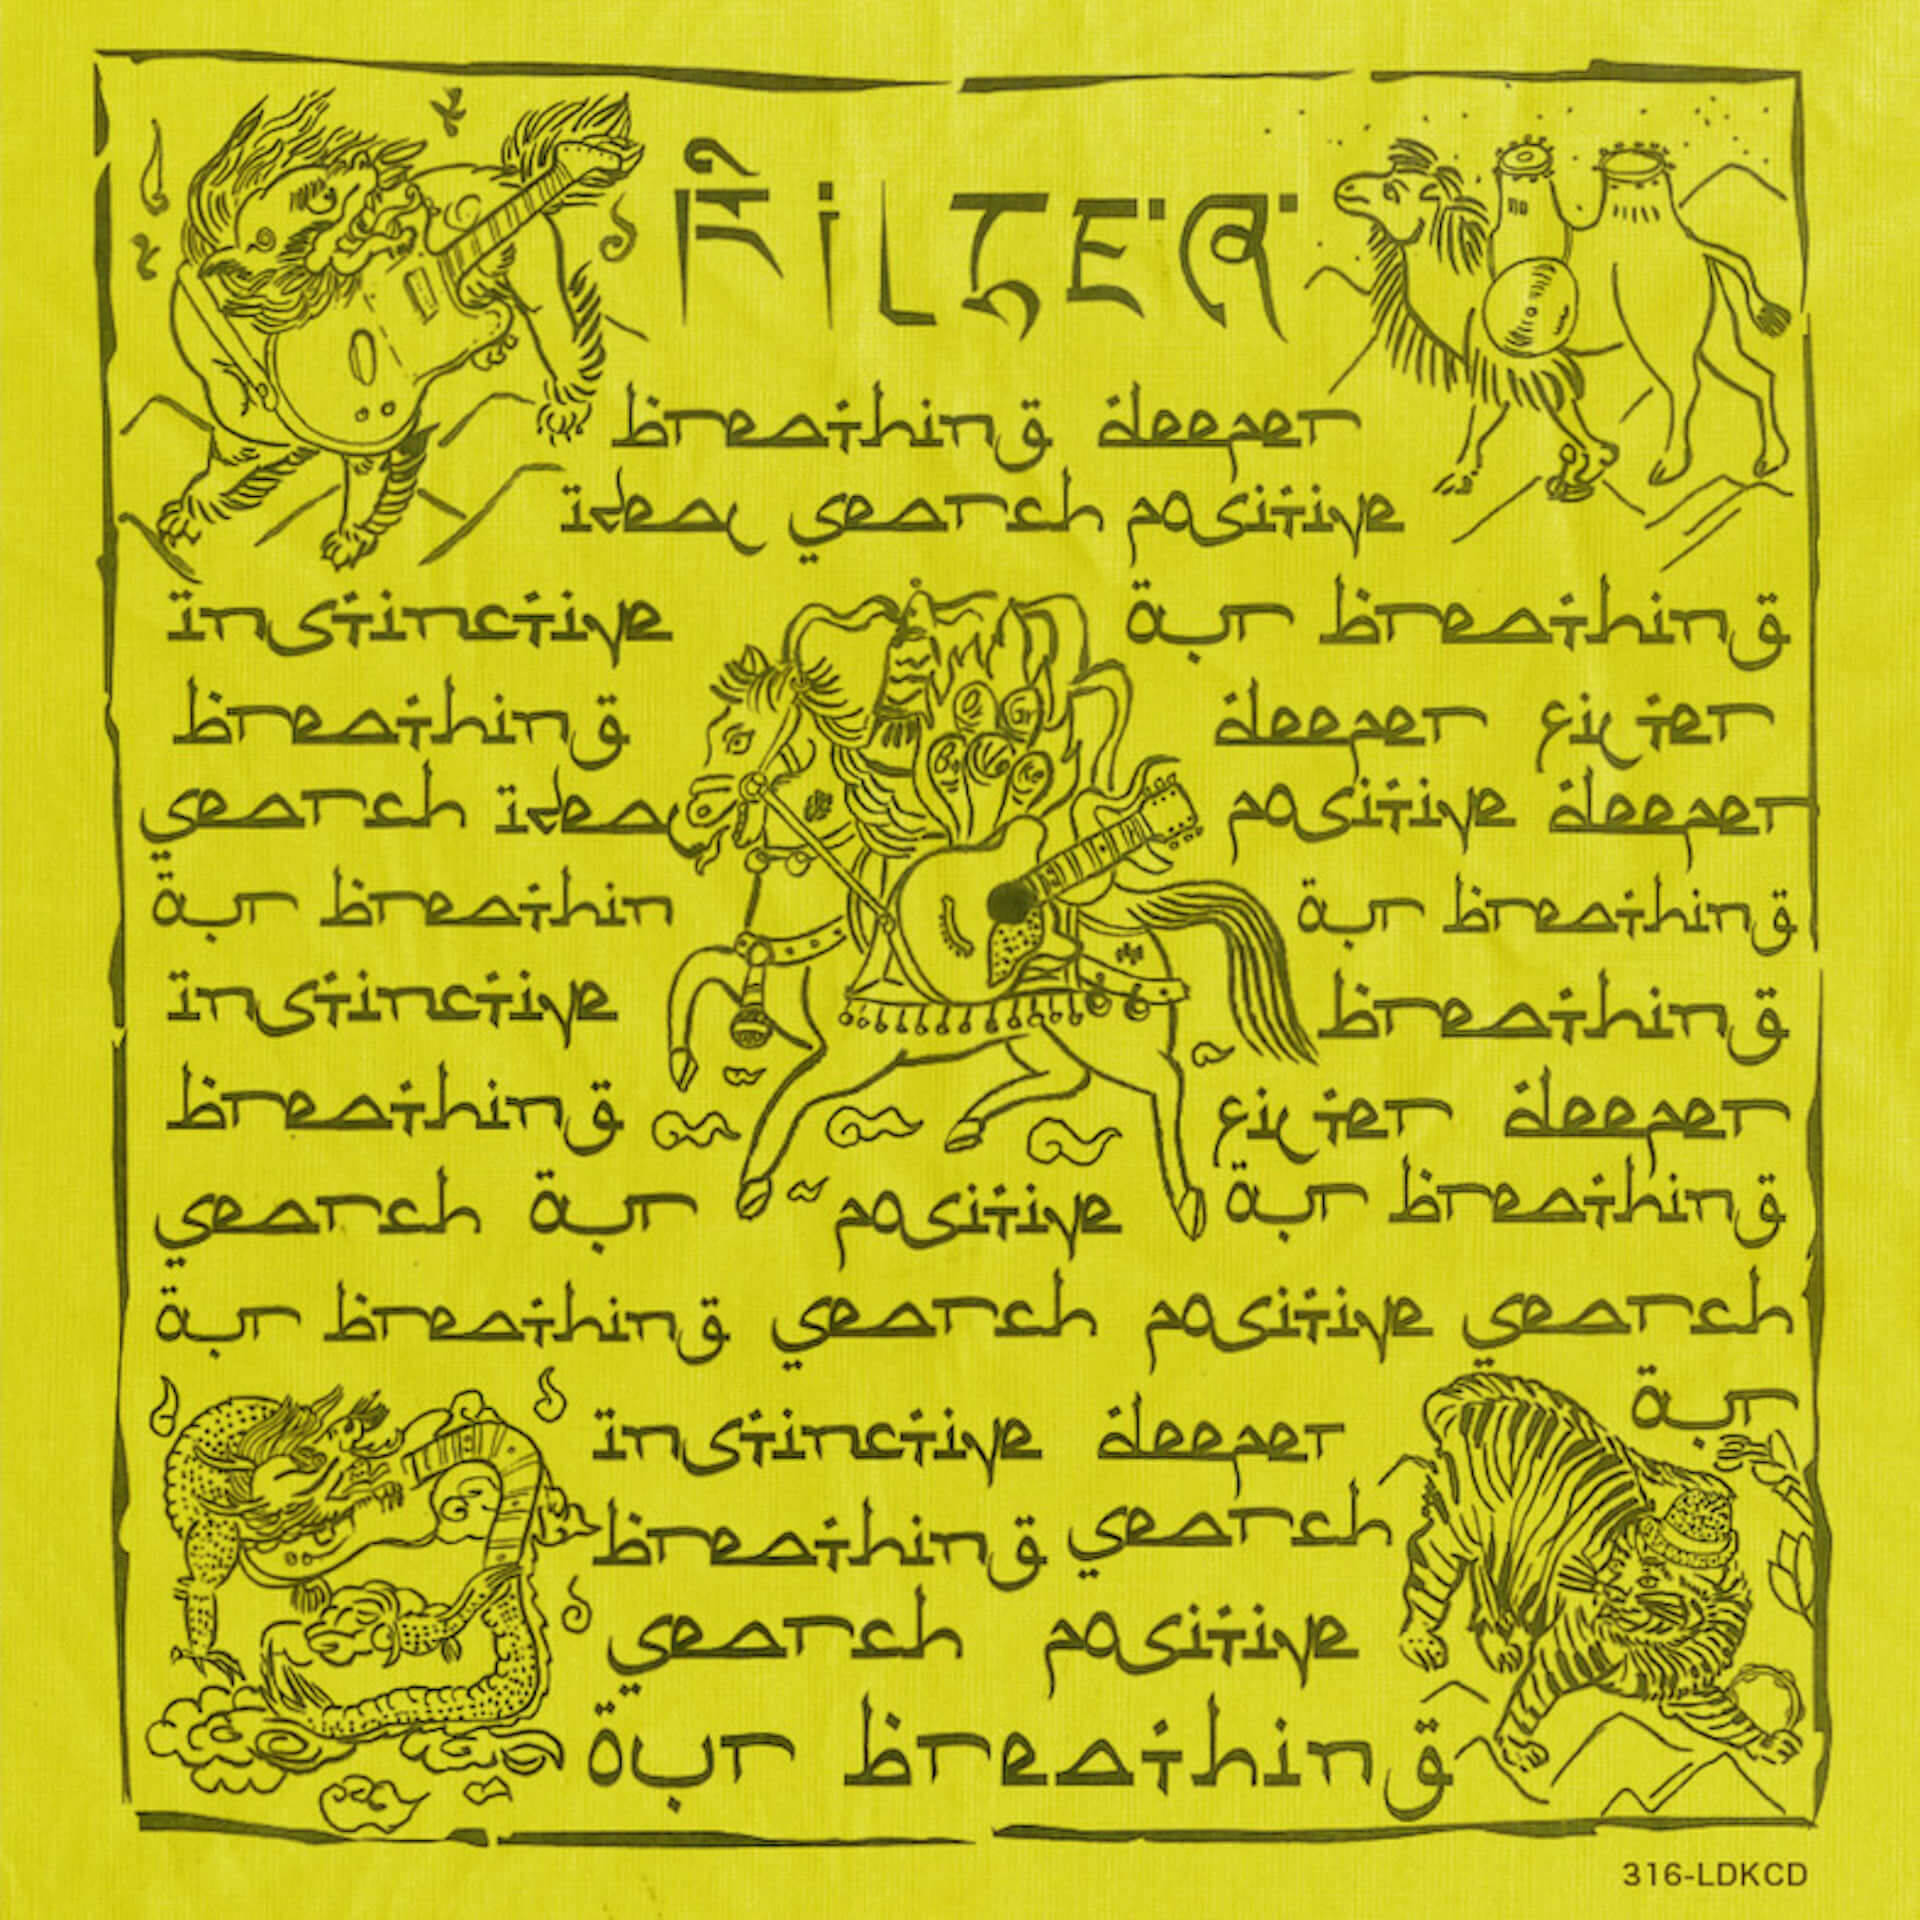 FiLTER
breathing deeper
ideal search positive
instinctive our breathing
breathing deeper filter
search ideal positive deeper
our breathin our breathing
instinctive breathing
breathing filter deeper
search our positive our breathing
our breathing search positive search
our
instinctive deeper
breathing search
search positive
our breathing
316-LDKCD